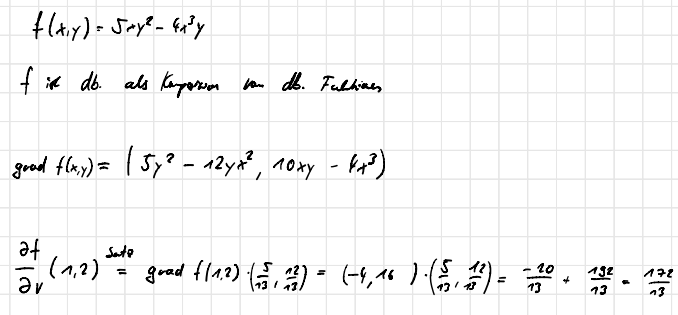 f(x,y) = 5xy² - 4x³y
f ist db. als Komposition von db. Funktionen
grad f(x,y) = (5y² - 12yx², 10xy - 4x³)
∂f/∂v (1,2) Satz = grad f(1,2) · (5/13, 12/13) = (-4, 16) · (5/13, 12/13) = -20/13 + 192/13 = 172/13